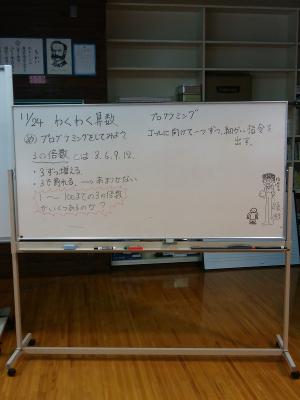 11/24 わくわく算数
め プログラミングをしてみよう
3の倍数とは 3.6.9.12.
・3ずつ増える
・3で割れる → あまりがない
1〜100までの3の倍数
がいくつあるのか？
プログラミング
ゴールに向けて一つずつ、細かい指令を
出す。